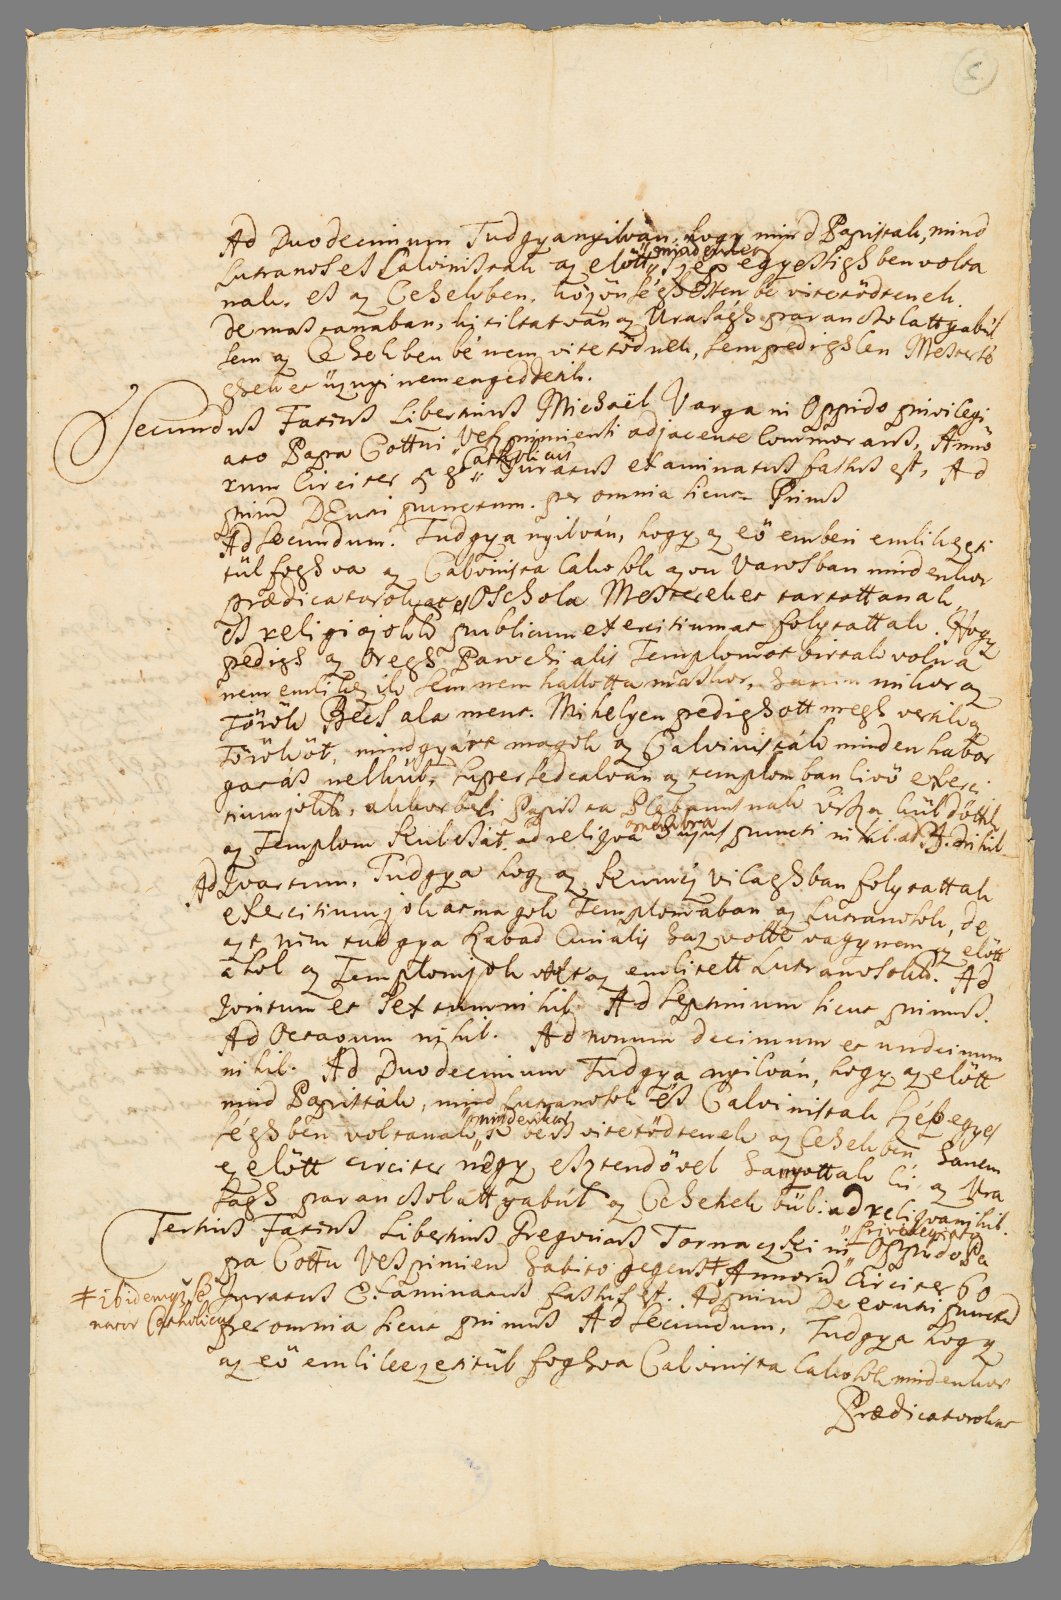 5.
Ad Duodecimum Tudgya nyilván, hogy mind Papisták, mind
Lutranosok es Calvinistak az elött mindenkor szép egyessigh ben volta
nak. es az Cehekben. köjönséghessen bé vitetödtenek.
de mastanaban, ki tiltatván az Uraságh parancsolattyabúl
sem az Cehekben bé nem vitetödnek, sem pedigh len Mesterse
gheket üznyi nem engedtetik.
Secundus Fatens Libertinus Michaël Varga in Oppido privilegi
ato Papa Cottui Veszprimiensi adjacente Commorans, Anno
rum Circiter Catholicus Juratus examinatus fassus est, Ad
primum DEutri punctum. per omnia sicut Primus
Ad secundum. Tudgya nyilván, hogy az eö emberi emlikezeti
tül foghva az Calvinista Lakosok azon Varosban mindenkor
prædicatorokat es Oschola Mestereket tartottanak
es religiojokk publicum exercitiumat folytattak. Hogy
pedigh az Öregh Parochialis Templomot birtak volna
nem emlikezik sem nem hallotta maskor, hanem mikor az
Török Becs ala ment. Mihelyen pedigh ott megh verik az
Törököt, mindgyárt magok az Calvinisták minden habor
gatás nelkül, supersedealván az templomban livö exerci
tiumjokk, akkorbeli Papista Plebanusnak visza küldöttek
az Templom kulcsát. ad reliqua membra hujus puncti nihil. ad 3. nihil
Ad Qvartum. Tudgya hogy az kuruczj vilaghban folytattak
exercitiumjokat magok Templomában az Lutranosok, de
azt nem tudgya szabad Curialis haz volté vagy nem az elött
a hol az Templomjok volt az emlitett Lutranosokk. Ad
Qvintum et Sextum nihil. Ad Septimum sicut primus.
Ad Octavum nihil. Ad nonum decimum et undecimum
nihil. Ad Duodecimum Tudgya nyilván, hogy az elött
mind Papisták, mind Lutranosok es Calvinistak szép egyes
séghben voltanak, mindenkor bé is vitetödtenek az Cehekben hanem
ez elött circiter négy esztendövel hanyottak ki az Ura
sagh parancsolattyabúl az Cehekek bül. ad reliqva nihil.
Tertius Fatens Libertinus Gregorius Tornaczki in Privilegiato Oppido Pa
pa Cottu Veszprimien habito degens # Annorū Circiter 60
# ibidem
nator Catholicus
Juratus Examinatus fassus est. Ad primū De eoutri punctū
per omnia sicut primus Ad Secundum, Tudgya hogy
az eö emlikezetitül foghva Calvinista Lakosok mindenkor
Prædicatorokat